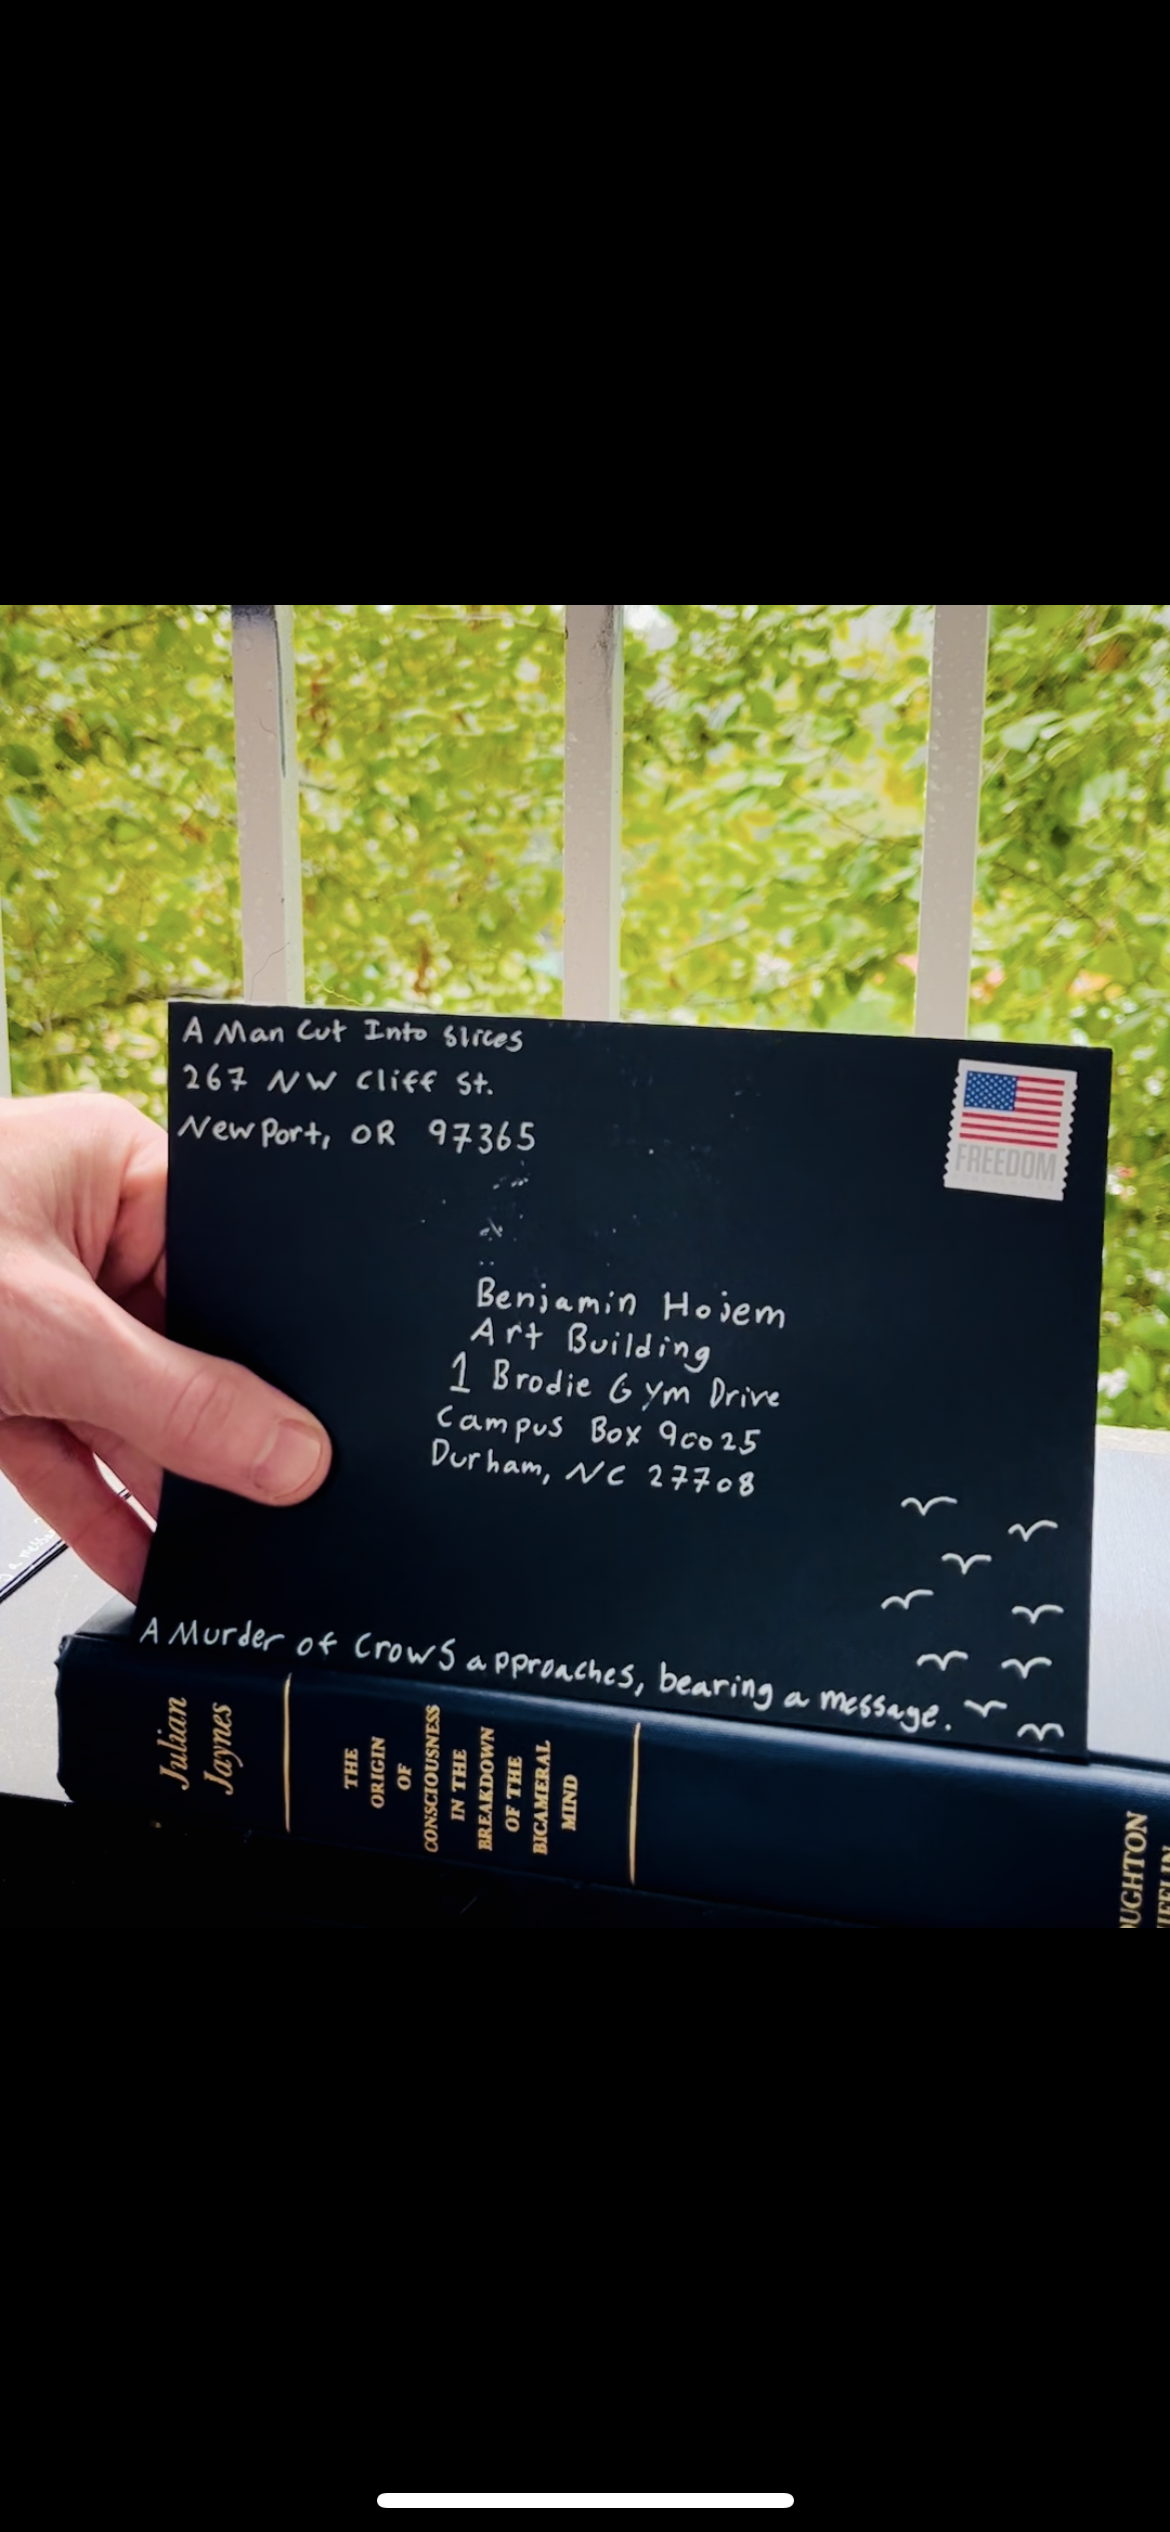 A Man Cut Into Slices
267 NW Cliff St.
Newport, OR 97365
FREEDOM
Benjamin Hojem
Art Building
1 Brodie Gym Drive
Campus Box 90025
Durham, NC 27708
A Murder of Crows approaches, bearing a message.
Julian
Jaynes
THE
ORIGIN
OF
CONSCIOUSNESS
IN THE
BREAKDOWN
OF THE
BICAMERAL
MIND
OUGHTON